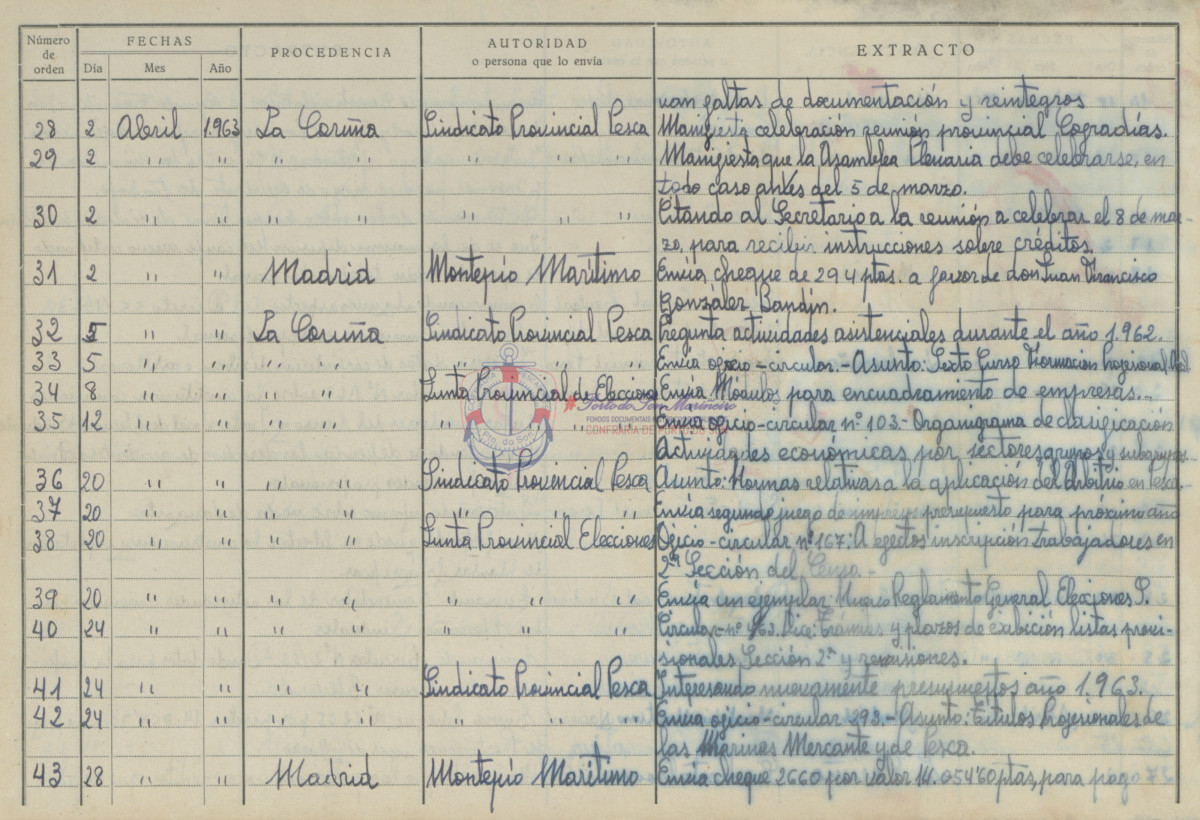 Número de orden FECHAS PROCEDENCIA AUTORIDAD EXTRACTO
Día Mes Año o persona que lo envía
van faltas de documentación y reintegros
28 2 Abril 1.963 La Coruña Sindicato Provincial Pesca Manifiesta celebración reunión provincial Cofradías.
29 2 " " " " " " " Manifiesta que la Asamblea Plenaria debe celebrarse, en
todo caso antes del 5 de marzo.
30 2 " " " " " " " Citando al Secretario a la reunión a celebrar el 8 de mar-
zo, para recibir instrucciones sobre créditos.
31 2 " " Madrid Montepío Marítimo Envía cheque de 294 ptas. a favor de don Juan Francisco
González Bandín.
32 5 " " La Coruña Sindicato Provincial Pesca Pregunta actividades asistenciales durante el año 1.962.
33 5 " " " " " " " Envía oficio-circular.- Asunto: Sexto Curso Formación Profesional
34 8 " " " " Junta Provincial de Elecciones Envía Módulos para encuadramiento de empresas.-
35 12 " " " " " " " Envía oficio-circular nº 103.- Organigrama de clasificación
Actividades económicas por sectores grupos y subgrupos.-
36 20 " " " " Sindicato Provencial Pesca Asunto: Normas relativas a la aplicación del Arbitrio en Pesca.-
37 20 " " " " " " " Envía segundo juego de impresos presupuesto para próximo año
38 20 " " " " Junta Provincial Elecciones Oficio-circular nº 167: A efectos inscripción trabajadores en
2ª Sección del Censo.-
39 20 " " " " " " " Envía un ejemplar Nuevo Reglamento General Elecciones P.
40 24 " " " " " " " Circular-nº 163. trámites y plazos de exibición listas provi-
sionales Sección 2ª y revisiones.
41 24 " " " " Sindicato Provincial Pesca Interesando nuevamente presupuestos año 1.963.
42 24 " " " " " " " Envía oficio-circular 293.- Asunto: Títulos Profesionales de
las Marinas Mercante y de Pesca.
43 28 " " Madrid Montepío Marítimo Envía cheque 2660 por valor 14.054'60 ptas, para pago
Porto do Son Marineiro
Pto. do Son